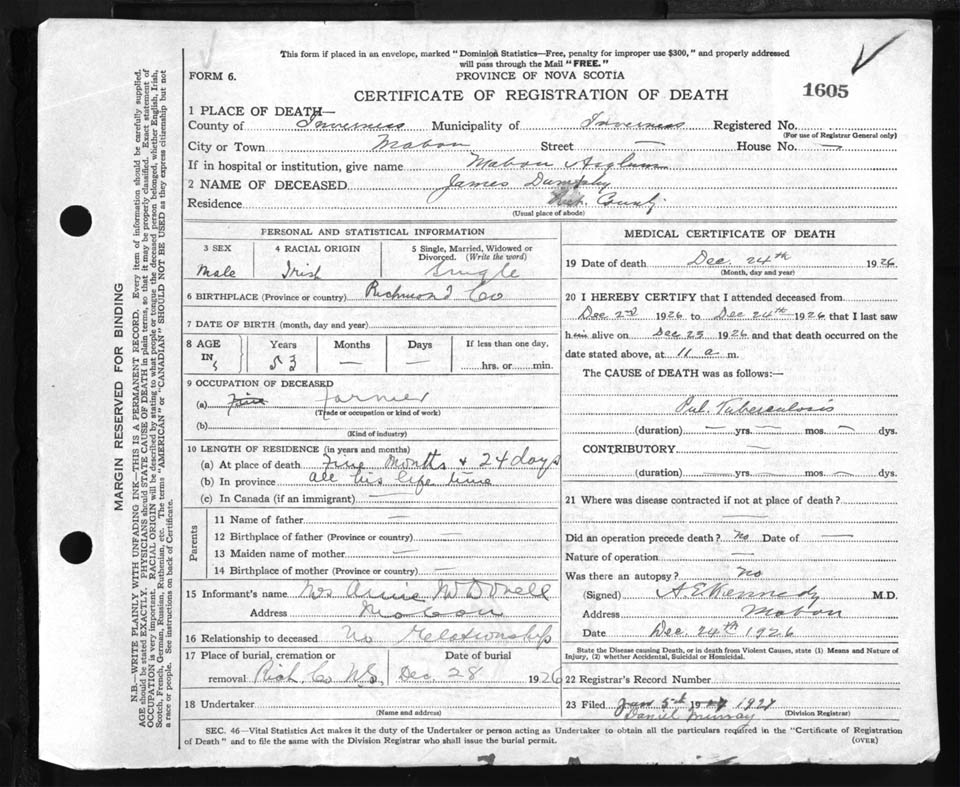 This form if placed in an envelope, marked "Dominion Statistics—Free, penalty for improper use $300," and properly addressed
will pass through the Mail "FREE."
FORM 6.
PROVINCE OF NOVA SCOTIA
CERTIFICATE OF REGISTRATION OF DEATH
1605
1 PLACE OF DEATH—
County of Inverness Municipality of Inverness Registered No.
(For use of Registrar General only)
City or Town Mabou Street — House No. —
If in hospital or institution, give name Mabou Asylum
2 NAME OF DECEASED James
Residence Rich. County
(Usual place of abode)
PERSONAL AND STATISTICAL INFORMATION
3 SEX
Male
4 RACIAL ORIGIN
Irish
5 Single, Married, Widowed or
Divorced. (Write the word)
Single
6 BIRTHPLACE (Province or country) Richmond Co
7 DATE OF BIRTH (month, day and year)
8 AGE IN
Years Months Days If less than one day,
53 — — hrs. or min.
9 OCCUPATION OF DECEASED
(a) farmer
(Trade or occupation or kind of work)
(b)
(Kind of industry)
10 LENGTH OF RESIDENCE (in years and months)
(a) At place of death Five months & 24 days
(b) In province all his life time
(c) In Canada (if an immigrant) —
Parents
11 Name of father —
12 Birthplace of father (Province or country) —
13 Maiden name of mother —
14 Birthplace of mother (Province or country) —
15 Informant's name Mrs Annie McDonell
Address Mabou
16 Relationship to deceased No Relationship
17 Place of burial, cremation or Date of burial
removal Rich. Co N.S. Dec 28 1926
18 Undertaker
(Name and address)
MEDICAL CERTIFICATE OF DEATH
19 Date of death Dec. 24th 1926
(Month, day and year)
20 I HEREBY CERTIFY that I attended deceased from
Dec 2nd 1926 to Dec 24th 1926 that I last saw
him alive on Dec 23 1926 and that death occurred on the
date stated above, at 11 a m.
The CAUSE of DEATH was as follows:—
Pul. Tuberculosis
(duration) — yrs. — mos. — dys.
CONTRIBUTORY —
(duration) — yrs. — mos. — dys.
21 Where was disease contracted if not at place of death?
—
Did an operation precede death? No Date of —
Nature of operation —
Was there an autopsy? No
(Signed) A. E. Kennedy M.D.
Address Mabou
Date Dec. 24th 1926
State the Disease causing Death, or in death from Violent Causes, state (1) Means and Nature of
Injury, (2) whether Accidental, Suicidal or Homicidal.
22 Registrar's Record Number
23 Filed Jan 5th 1927
Daniel Murray (Division Registrar)
SEC. 46—Vital Statistics Act makes it the duty of the Undertaker or person acting as Undertaker to obtain all the particulars required in the "Certificate of Registration
of Death" and to file the same with the Division Registrar who shall issue the burial permit. (OVER)
MARGIN RESERVED FOR BINDING
N.B.—WRITE PLAINLY WITH UNFADING INK—THIS IS A PERMANENT RECORD. Every item of information should be carefully supplied.
AGE should be stated EXACTLY. PHYSICIANS should STATE CAUSE OF DEATH in plain terms, so that it may be properly classified. Exact statement of
OCCUPATION is very important. RACIAL ORIGIN will be described by stating to what people or tongue the deceased person belonged, whether English, Irish,
Scotch, French, German, Russian, Ruthenian, etc. The terms "AMERICAN" or "CANADIAN" SHOULD NOT BE USED as they express citizenship but not
a race or people. See instructions on back of Certificate.